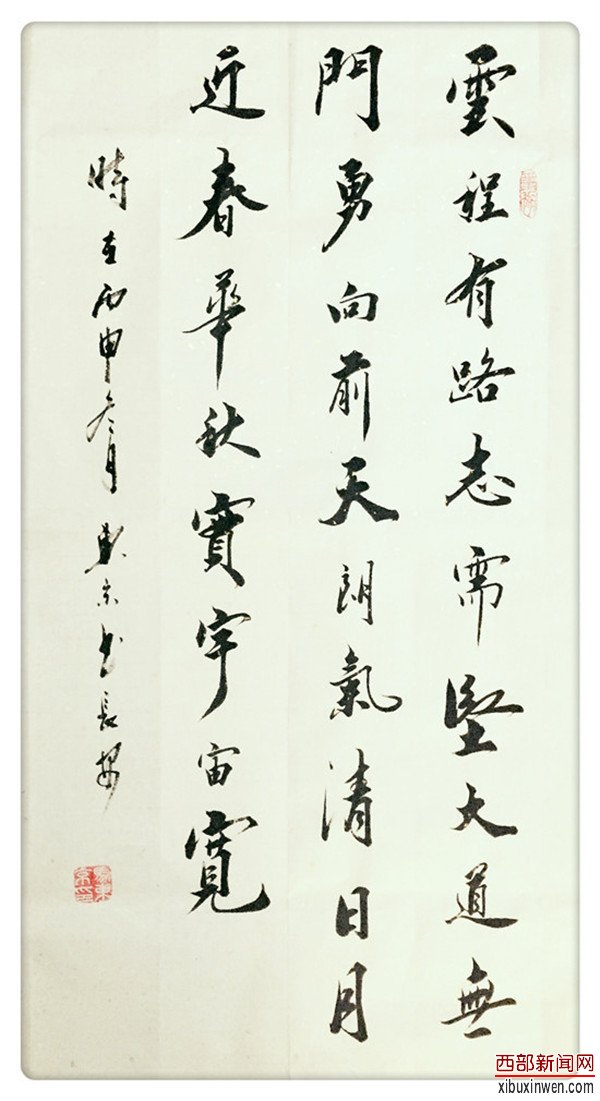 雲程有路志需堅大道無
門勇向前天朗氣清日月
近春華秋實宇宙寬
時在丙申冬月東京書長安
西部新闻网
xibuxinwen.com